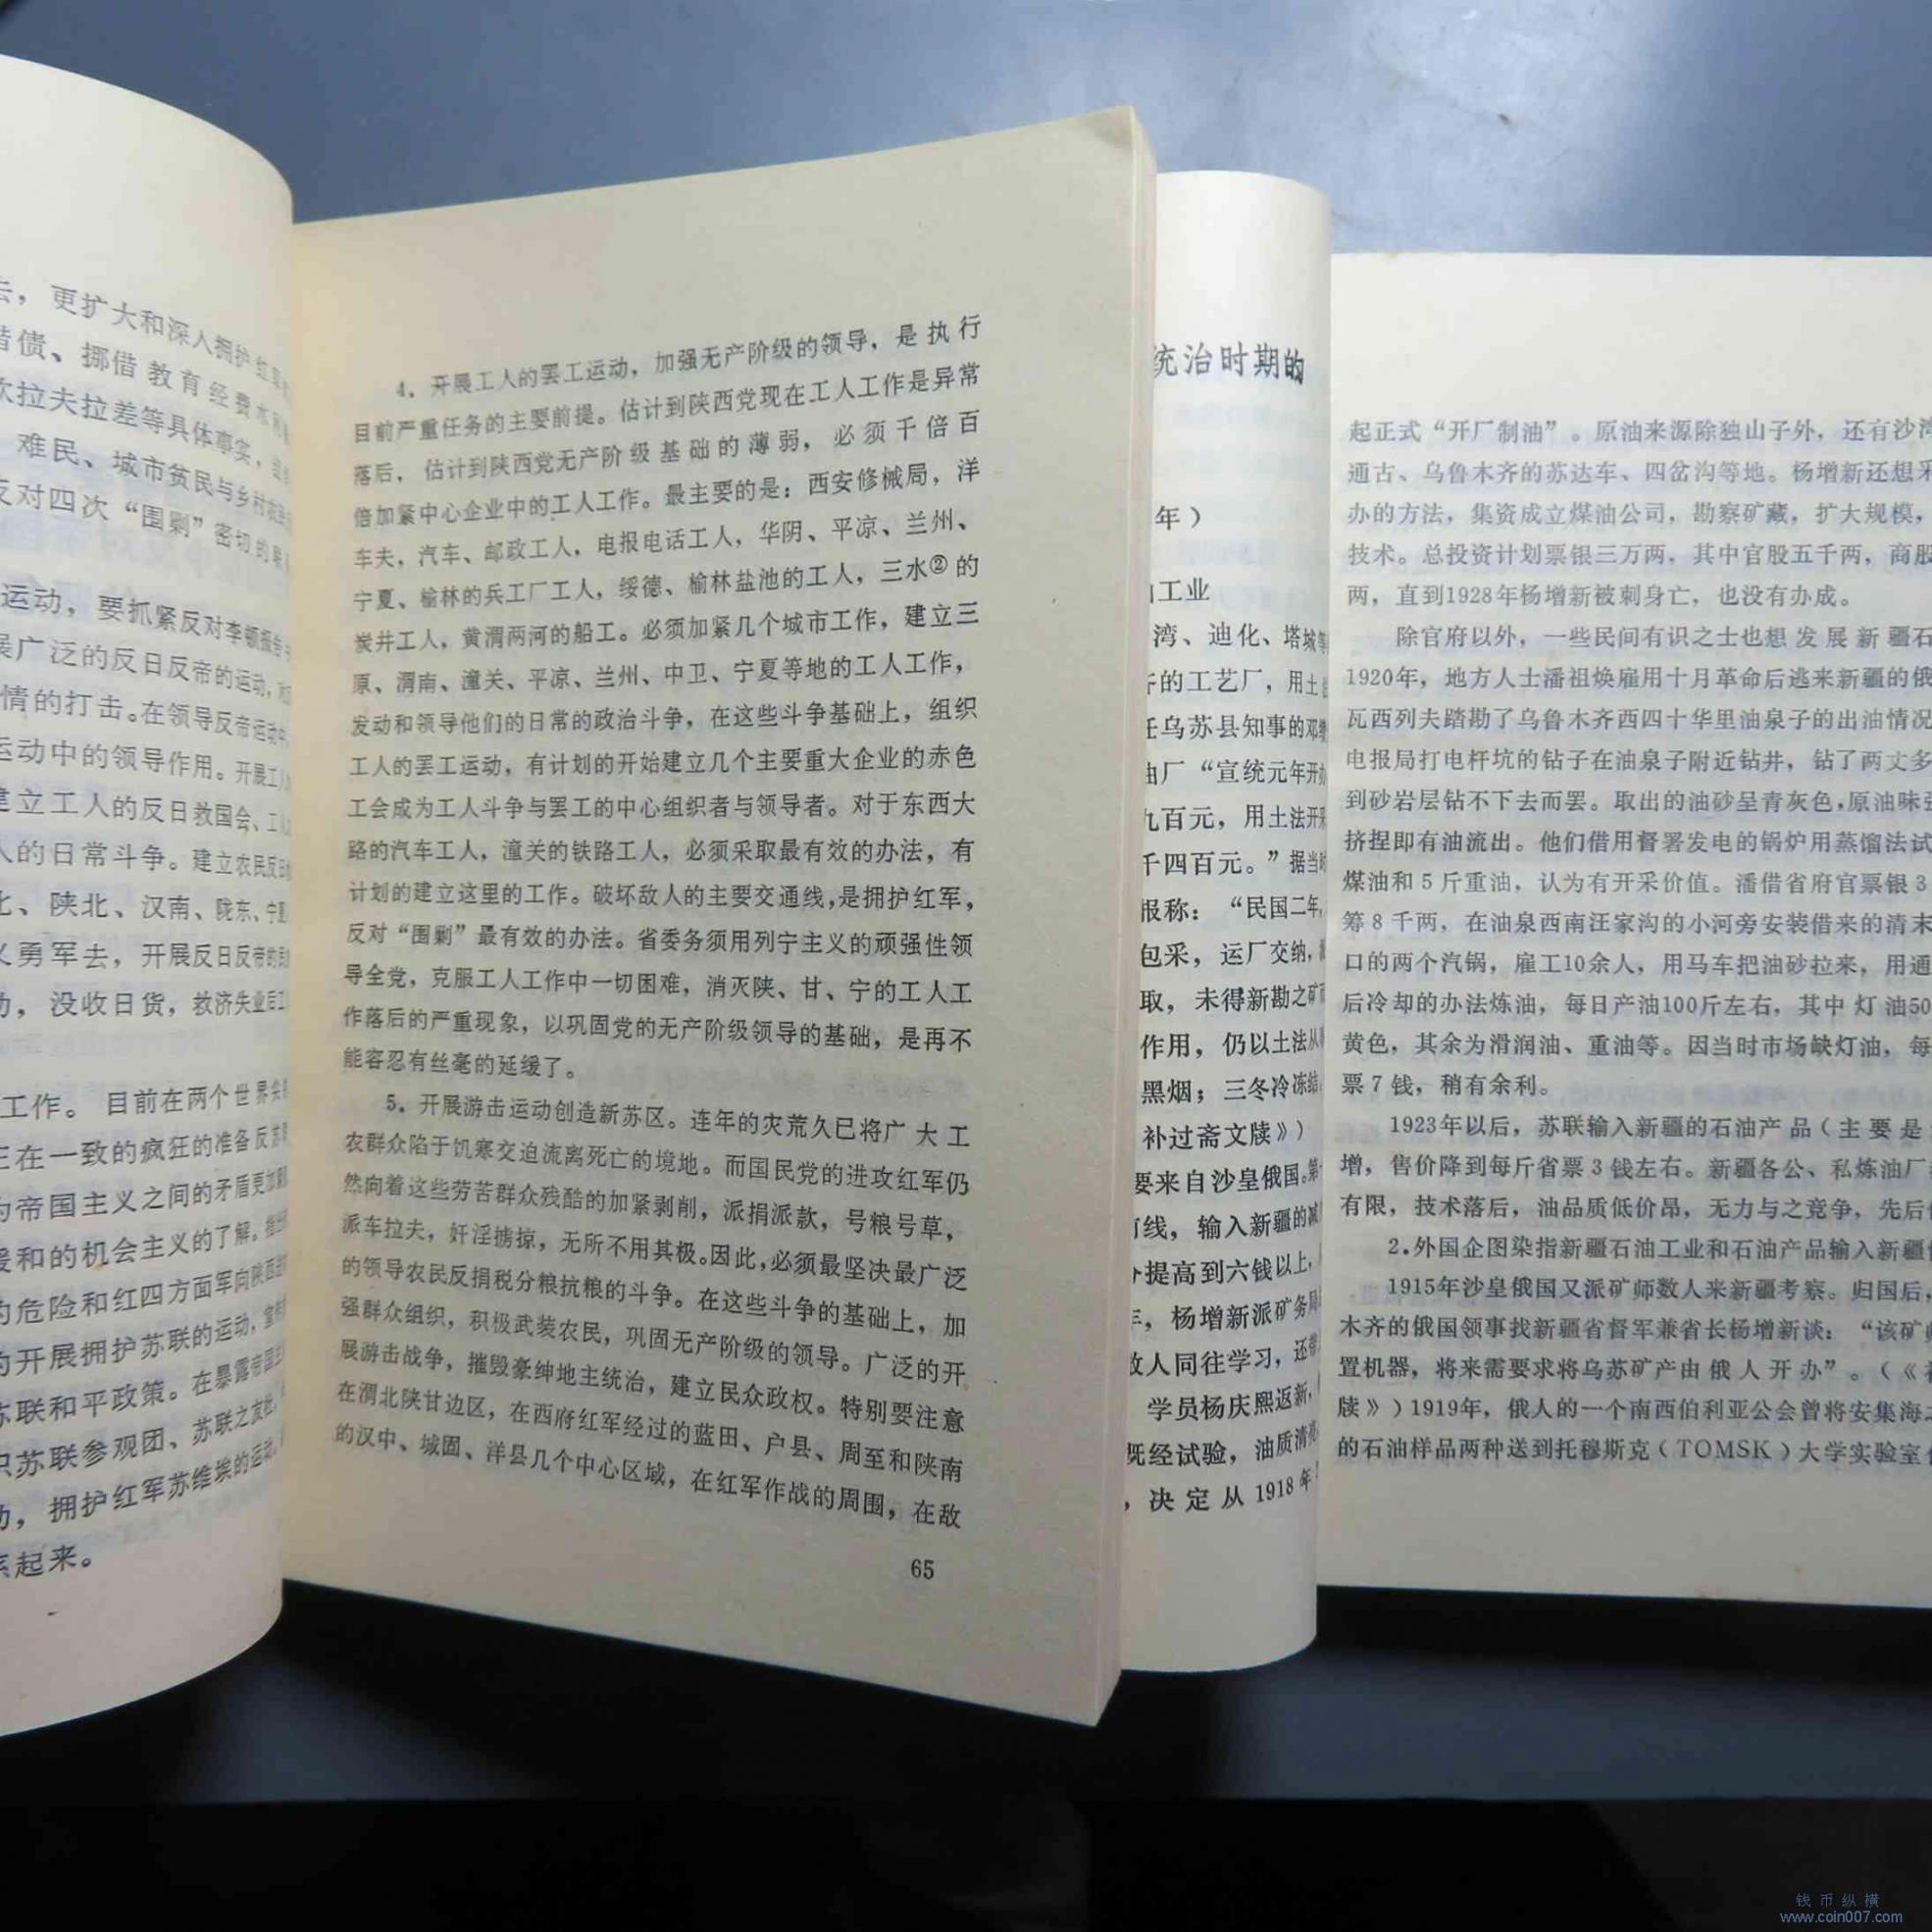 去，更扩大和深入拥护红
借债、挪借教育经费水利
饮拉夫拉差等具体事实，
难民、城市贫民与乡村
反对四次“围剿”密切的联
运动，要抓紧反对李顿报告书
展广泛的反日反帝的运动，
情的打击。在领导反帝运动中
运动中的领导作用。开展工人
建立工人的反日救国会、工人
人的日常斗争。建立农民反日
北、陕北、汉南、陇东、宁夏
义勇军去，开展反日反帝的
动，没收日货，救济失业后工
工作。目前在两个世界尖
正在一致的疯狂的准备反苏
为帝国主义之间的矛盾更加
缓和的机会主义的了解。指出
的危险和红四方面军向陕西
的开展拥护苏联的运动，宣传
苏联和平政策。在暴露帝国主
织苏联参观团、苏联之友社，
动，拥护红军苏维埃的运动，
系起来。
4．开展工人的罢工运动，加强无产阶级的领导，是执行
目前严重任务的主要前提。估计到陕西党现在工人工作是异常
落后，估计到陕西党无产阶级基础的薄弱，必须千倍百
倍加紧中心企业中的工人工作。最主要的是：西安修械局，洋
车夫，汽车、邮政工人，电报电话工人，华阴、平凉、兰州、
宁夏、榆林的兵工厂工人，绥德、榆林盐池的工人，三水②的
炭井工人，黄渭两河的船工。必须加紧几个城市工作，建立三
原、渭南、潼关、平凉、兰州、中卫、宁夏等地的工人工作，
发动和领导他们的日常的政治斗争，在这些斗争基础上，组织
工人的罢工运动，有计划的开始建立几个主要重大企业的赤色
工会成为工人斗争与罢工的中心组织者与领导者。对于东西大
路的汽车工人，潼关的铁路工人，必须采取最有效的办法，有
计划的建立这里的工作。破坏敌人的主要交通线，是拥护红军，
反对“围剿”最有效的办法。省委务须用列宁主义的顽强性领
导全党，克服工人工作中一切困难，消灭陕、甘、宁的工人工
作落后的严重现象，以巩固党的无产阶级领导的基础，是再不
能容忍有丝毫的延缓了。
5．开展游击运动创造新苏区。连年的灾荒久已将广大工
农群众陷于饥寒交迫流离死亡的境地。而国民党的进攻红军仍
然向着这些劳苦群众残酷的加紧剥削，派捐派款，号粮号草，
派车拉夫，奸淫掳掠，无所不用其极。因此，必须最坚决最广泛
的领导农民反捐税分粮抗粮的斗争。在这些斗争的基础上，加
强群众组织，积极武装农民，巩固无产阶级的领导。广泛的开
展游击战争，摧毁豪绅地主统治，建立民众政权。特别要注意
在渭北陕甘边区，在西府红军经过的蓝田、户县、周至和陕南
的汉中、城固、洋县几个中心区域，在红军作战的周围，在敌
65
统治时期的
年）
工业
湾、迪化、塔城等
的工艺厂，用土
任乌苏县知事的邓
油厂“宣统元年开办
九百元，用土法开采
千四百元。”据当时
报称：“民国二年，
包采，运厂交纳，
取，未得新勘之矿
作用，仍以土法从
黑烟；三冬冷冻结
补过斋文牍》）
要来自沙皇俄国。第
有线，输入新疆的减
提高到六钱以上，
年，杨增新派矿务局
数人同往学习，还带
学员杨庆熙返新，
既经试验，油质清亮
，决定从1918年
起正式“开厂制油”。原油来源除独山子外，还有沙湾
通古、乌鲁木齐的苏达车、四岔沟等地。杨增新还想采
办的方法，集资成立煤油公司，勘察矿藏，扩大规模，
技术。总投资计划票银三万两，其中官股五千两，商股
两，直到1928年杨增新被刺身亡，也没有办成。
除官府以外，一些民间有识之士也想发展新疆石
1920年，地方人士潘祖焕雇用十月革命后逃来新疆的俄
瓦西列夫踏勘了乌鲁木齐西四十华里油泉子的出油情况
电报局打电杆坑的钻子在油泉子附近钻井，钻了两丈多
到砂岩层钻不下去而罢。取出的油砂呈青灰色，原油味强
挤捏即有油流出。他们借用督署发电的锅炉用蒸馏法试
煤油和5斤重油，认为有开采价值。潘借省府官票银3
筹8千两，在油泉西南汪家沟的小河旁安装借来的清末
口的两个汽锅，雇工10余人，用马车把油砂拉来，用通
后冷却的办法炼油，每日产油100斤左右，其中灯油50
黄色，其余为滑润油、重油等。因当时市场缺灯油，每
票7钱，稍有余利。
1923年以后，苏联输入新疆的石油产品（主要是
增，售价降到每斤省票3钱左右。新疆各公、私炼油厂
有限，技术落后，油品质低价昂，无力与之竞争，先后
2.外国企图染指新疆石油工业和石油产品输入新疆
1915年沙皇俄国又派矿师数人来新疆考察。归国后，
木齐的俄国领事找新疆省督军兼省长杨增新谈：“该矿
置机器，将来需要求将乌苏矿产由俄人开办”。（《补
牍》）1919年，俄人的一个南西伯利亚公会曾将安集海
的石油样品两种送到托穆斯克（TOMSK）大学实验室
钱币纵横
www.coin007.com